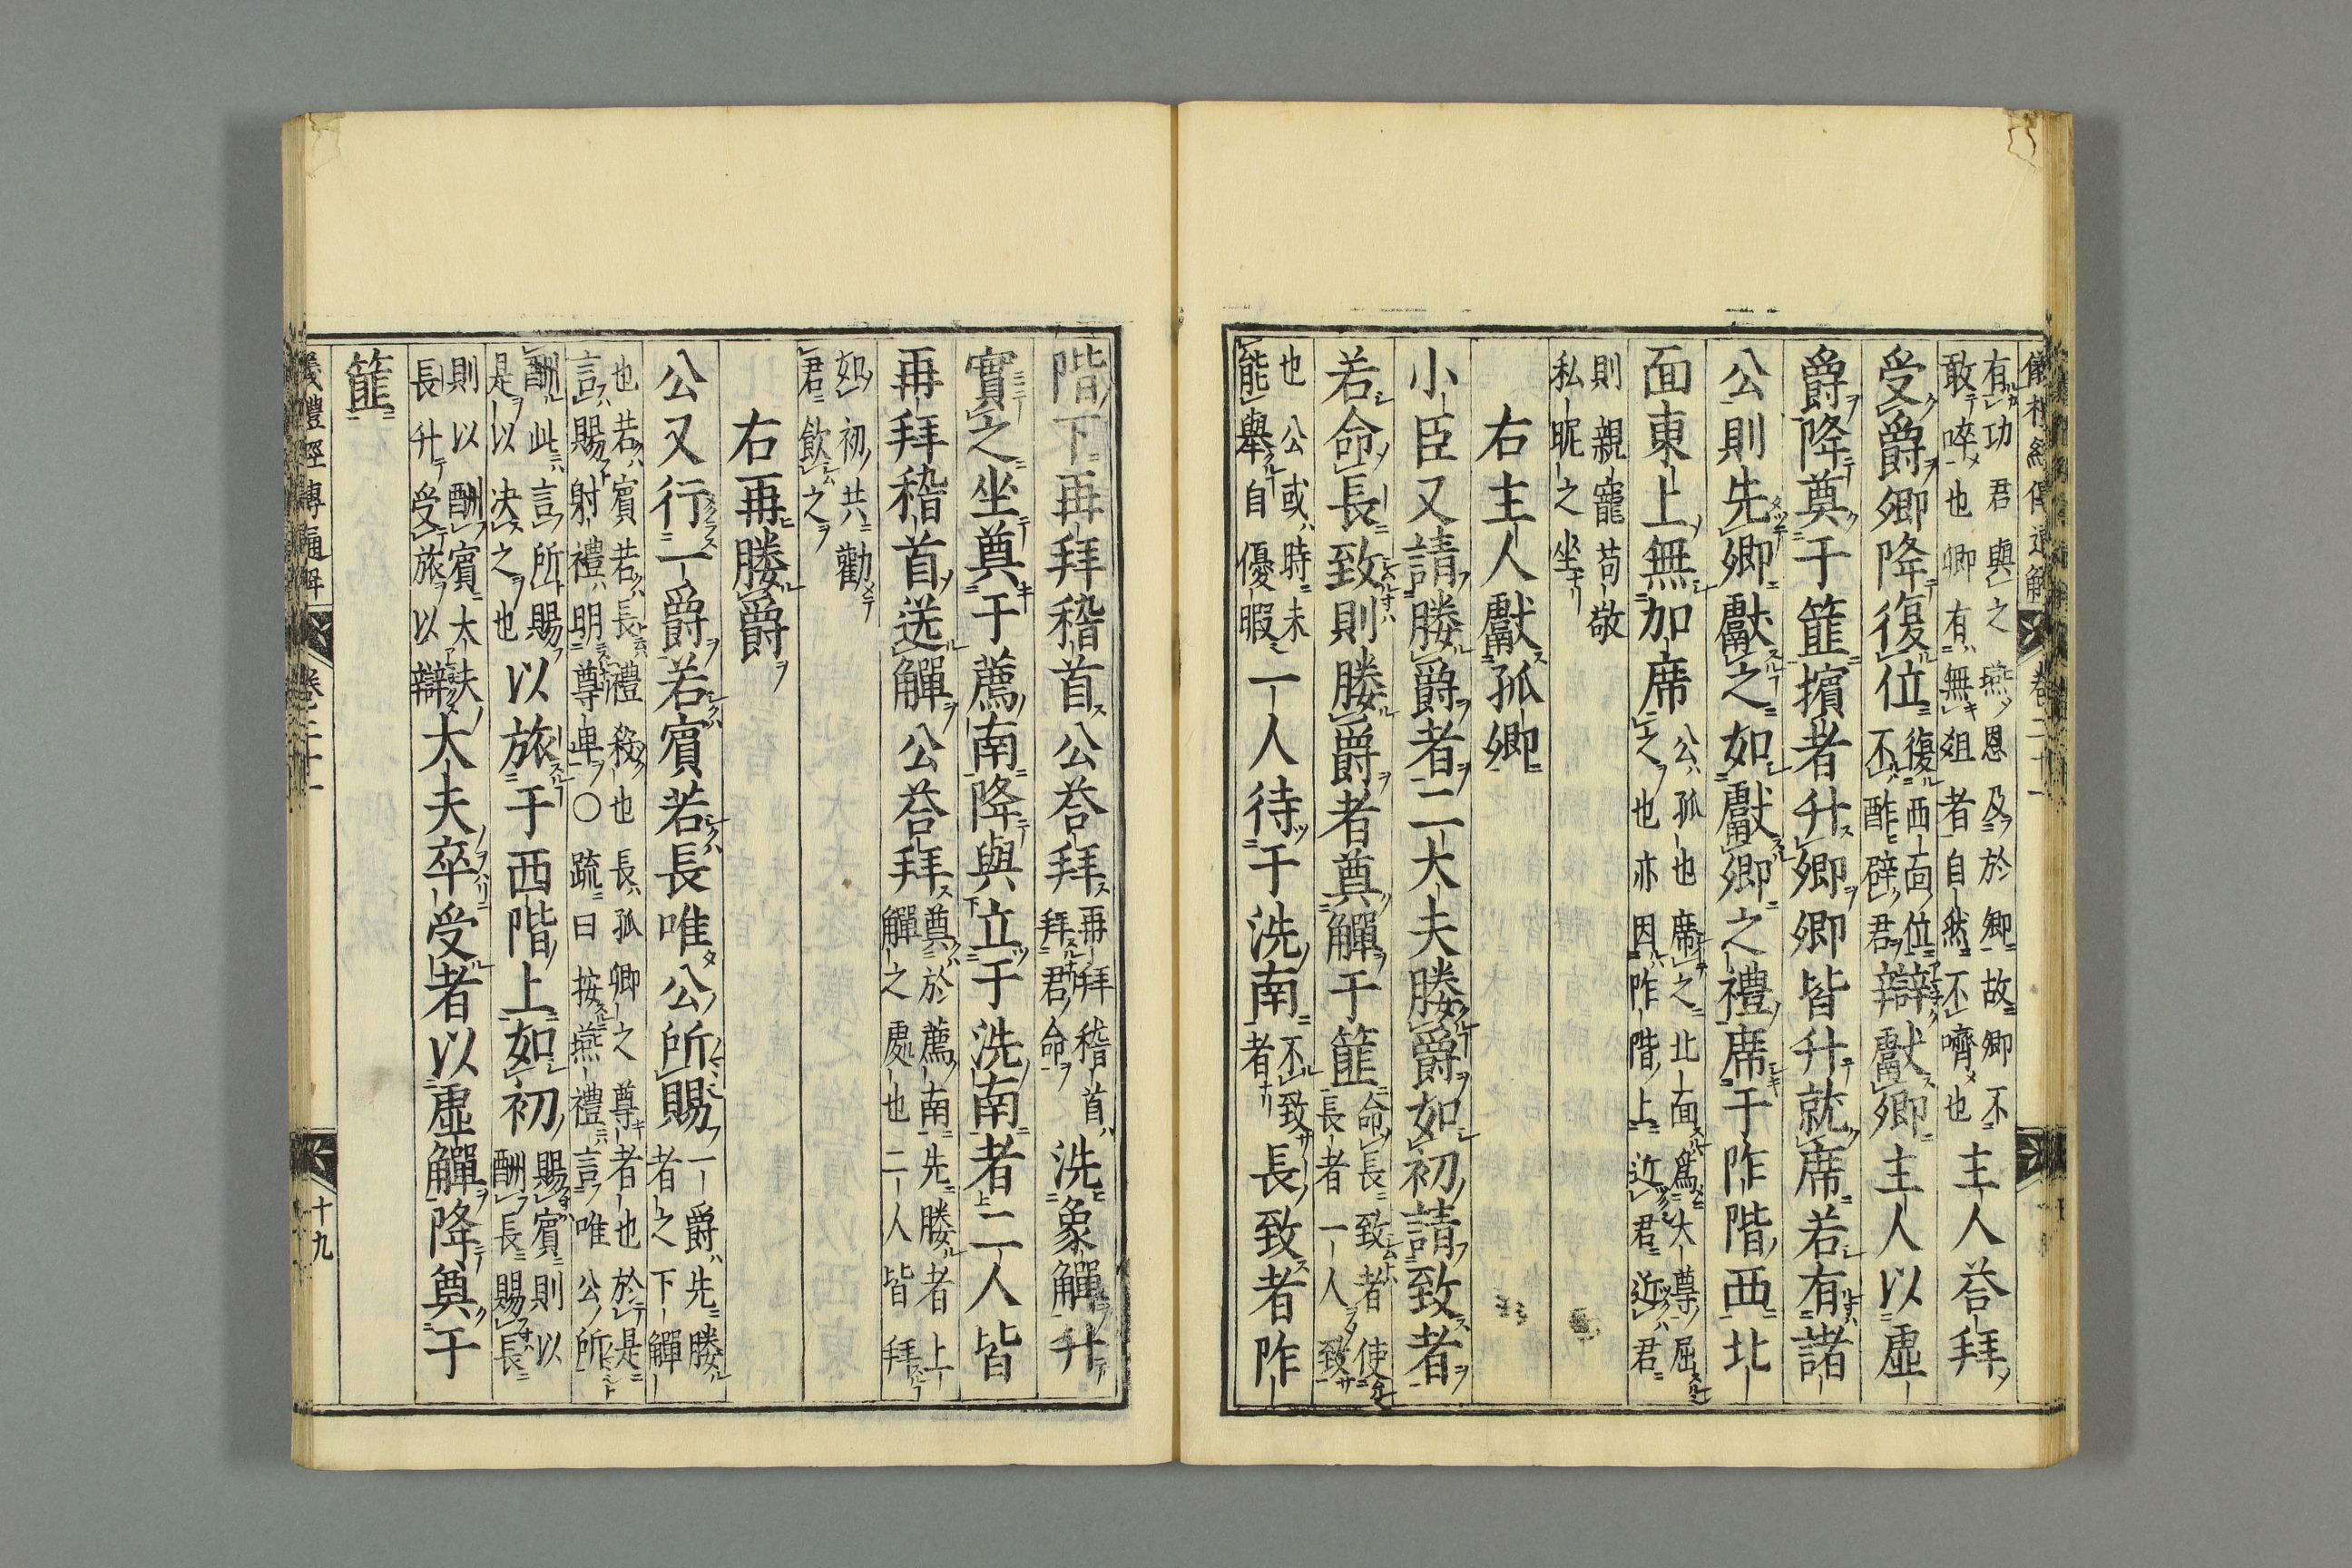 儀禮經傳通解 卷二十一
有功君與之燕恩及於卿故卿不
敢啐也卿有無俎者自然不嚌也
主人荅拜
受爵卿降復位
復西面位
不酢辟君
辯獻卿主人以虛
爵降奠于篚擯者升卿卿皆升就席若有諸
公則先卿獻之如獻卿之禮席于阼階西北
面東上無加席
公孤也席之北面爲大尊屈
之也亦因阼階上近君近君
則親寵苟敬
私昵之坐
右主人獻孤卿
小臣又請媵爵者二大夫媵爵如初請致者
若命長致則媵爵者奠觶于篚
命長致者使
長者一人致
也公或時未
能舉自優暇
一人待于洗南
不致
者
長致者阼
階下再拜稽首公荅拜
再拜稽首
拜君命
洗象觶升
實之坐奠于薦南降與立于洗南者二人皆
再拜稽首送觶公荅拜
奠於薦南先媵者上
觶之處也二人皆拜
如初共勸
君飲之
右再媵爵
公又行一爵若賓若長唯公所賜
一爵先媵
者之下觶
也若賓若長禮殺也長孤卿之尊者也於是
言賜射禮明尊卑〇疏曰按燕禮言唯公所
酬此言所賜
是以决之也
以旅于西階上如初
賜賓則以
酬長賜長
則以酬賓大夫
長升受旅以辯
大夫卒受者以虛觶降奠于
篚
儀禮經傳通解 卷二十一 十九